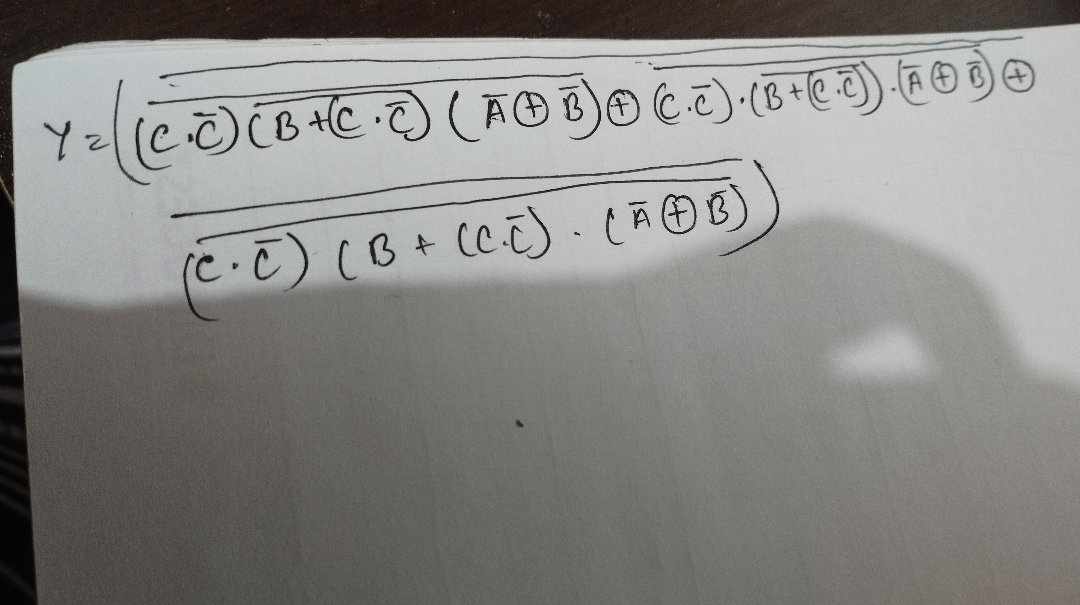 Y = ((C·C̅)(B+(C·C̅)(A̅⊕B̅)⊕(C·C̅)·(B+(C·C̅))·(A̅⊕B̅)⊕
(C·C̅)(B+(C·C̅)·(A̅⊕B̅)))